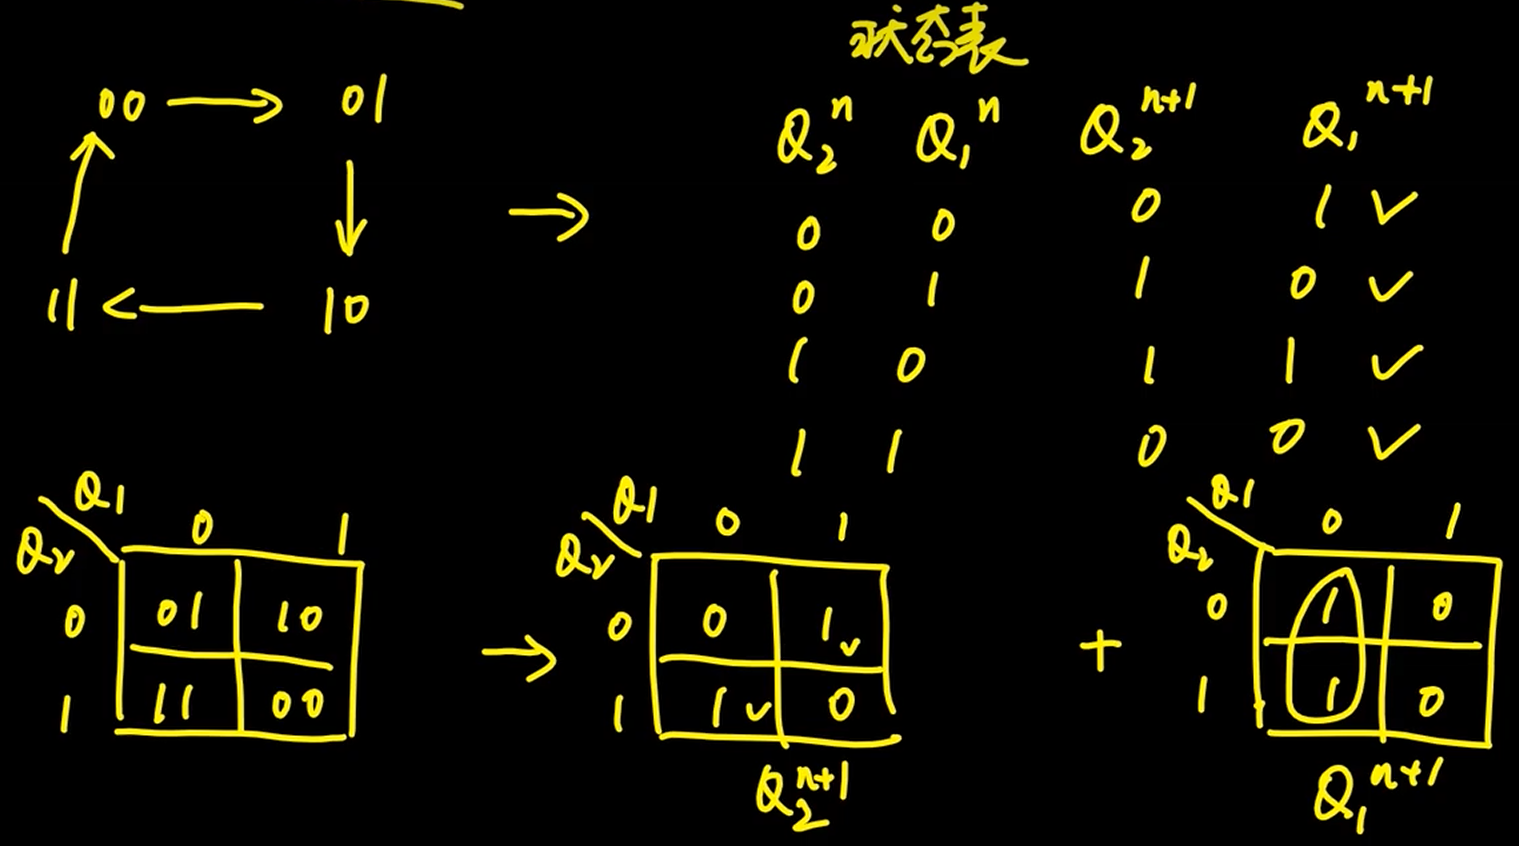 状态表
00 → 01
↓
11 ← 10
↑
→
Q₂ⁿ Q₁ⁿ Q₂ⁿ⁺¹ Q₁ⁿ⁺¹
0 0 0 1 ✓
0 1 1 0 ✓
1 0 1 1 ✓
1 1 0 0 ✓
Q1
Q2
0 1
0 01 10
1 11 00
→
Q1
Q2
0 1
0 0 1 ✓
1 1 ✓ 0
Q₂ⁿ⁺¹
+
Q1
Q2
0 1
0 1 0
1 1 0
Q₁ⁿ⁺¹